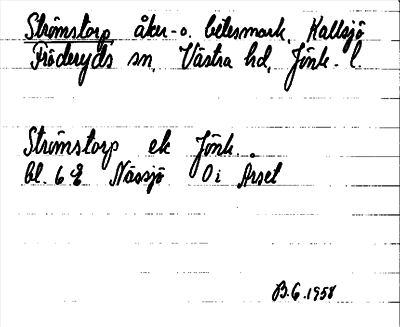 Strömstorp åker- o. betesmark, Kallsjö
Fröderyds sn, Västra hd, Jönk. l.
Strömstorp ek Jönk.
bl. 6 E Nässjö O i Årset
B.G. 1958